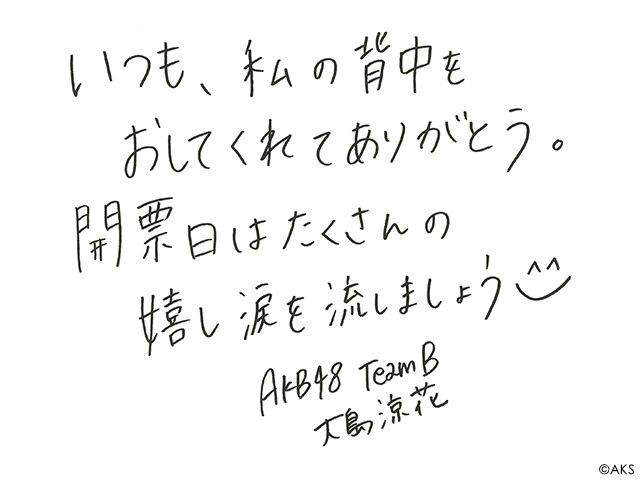 いつも、私の背中を
おしてくれてありがとう。
開票日はたくさんの
嬉し涙を流しましょう^^
AKB48 TeamB
大島涼花
©AKS